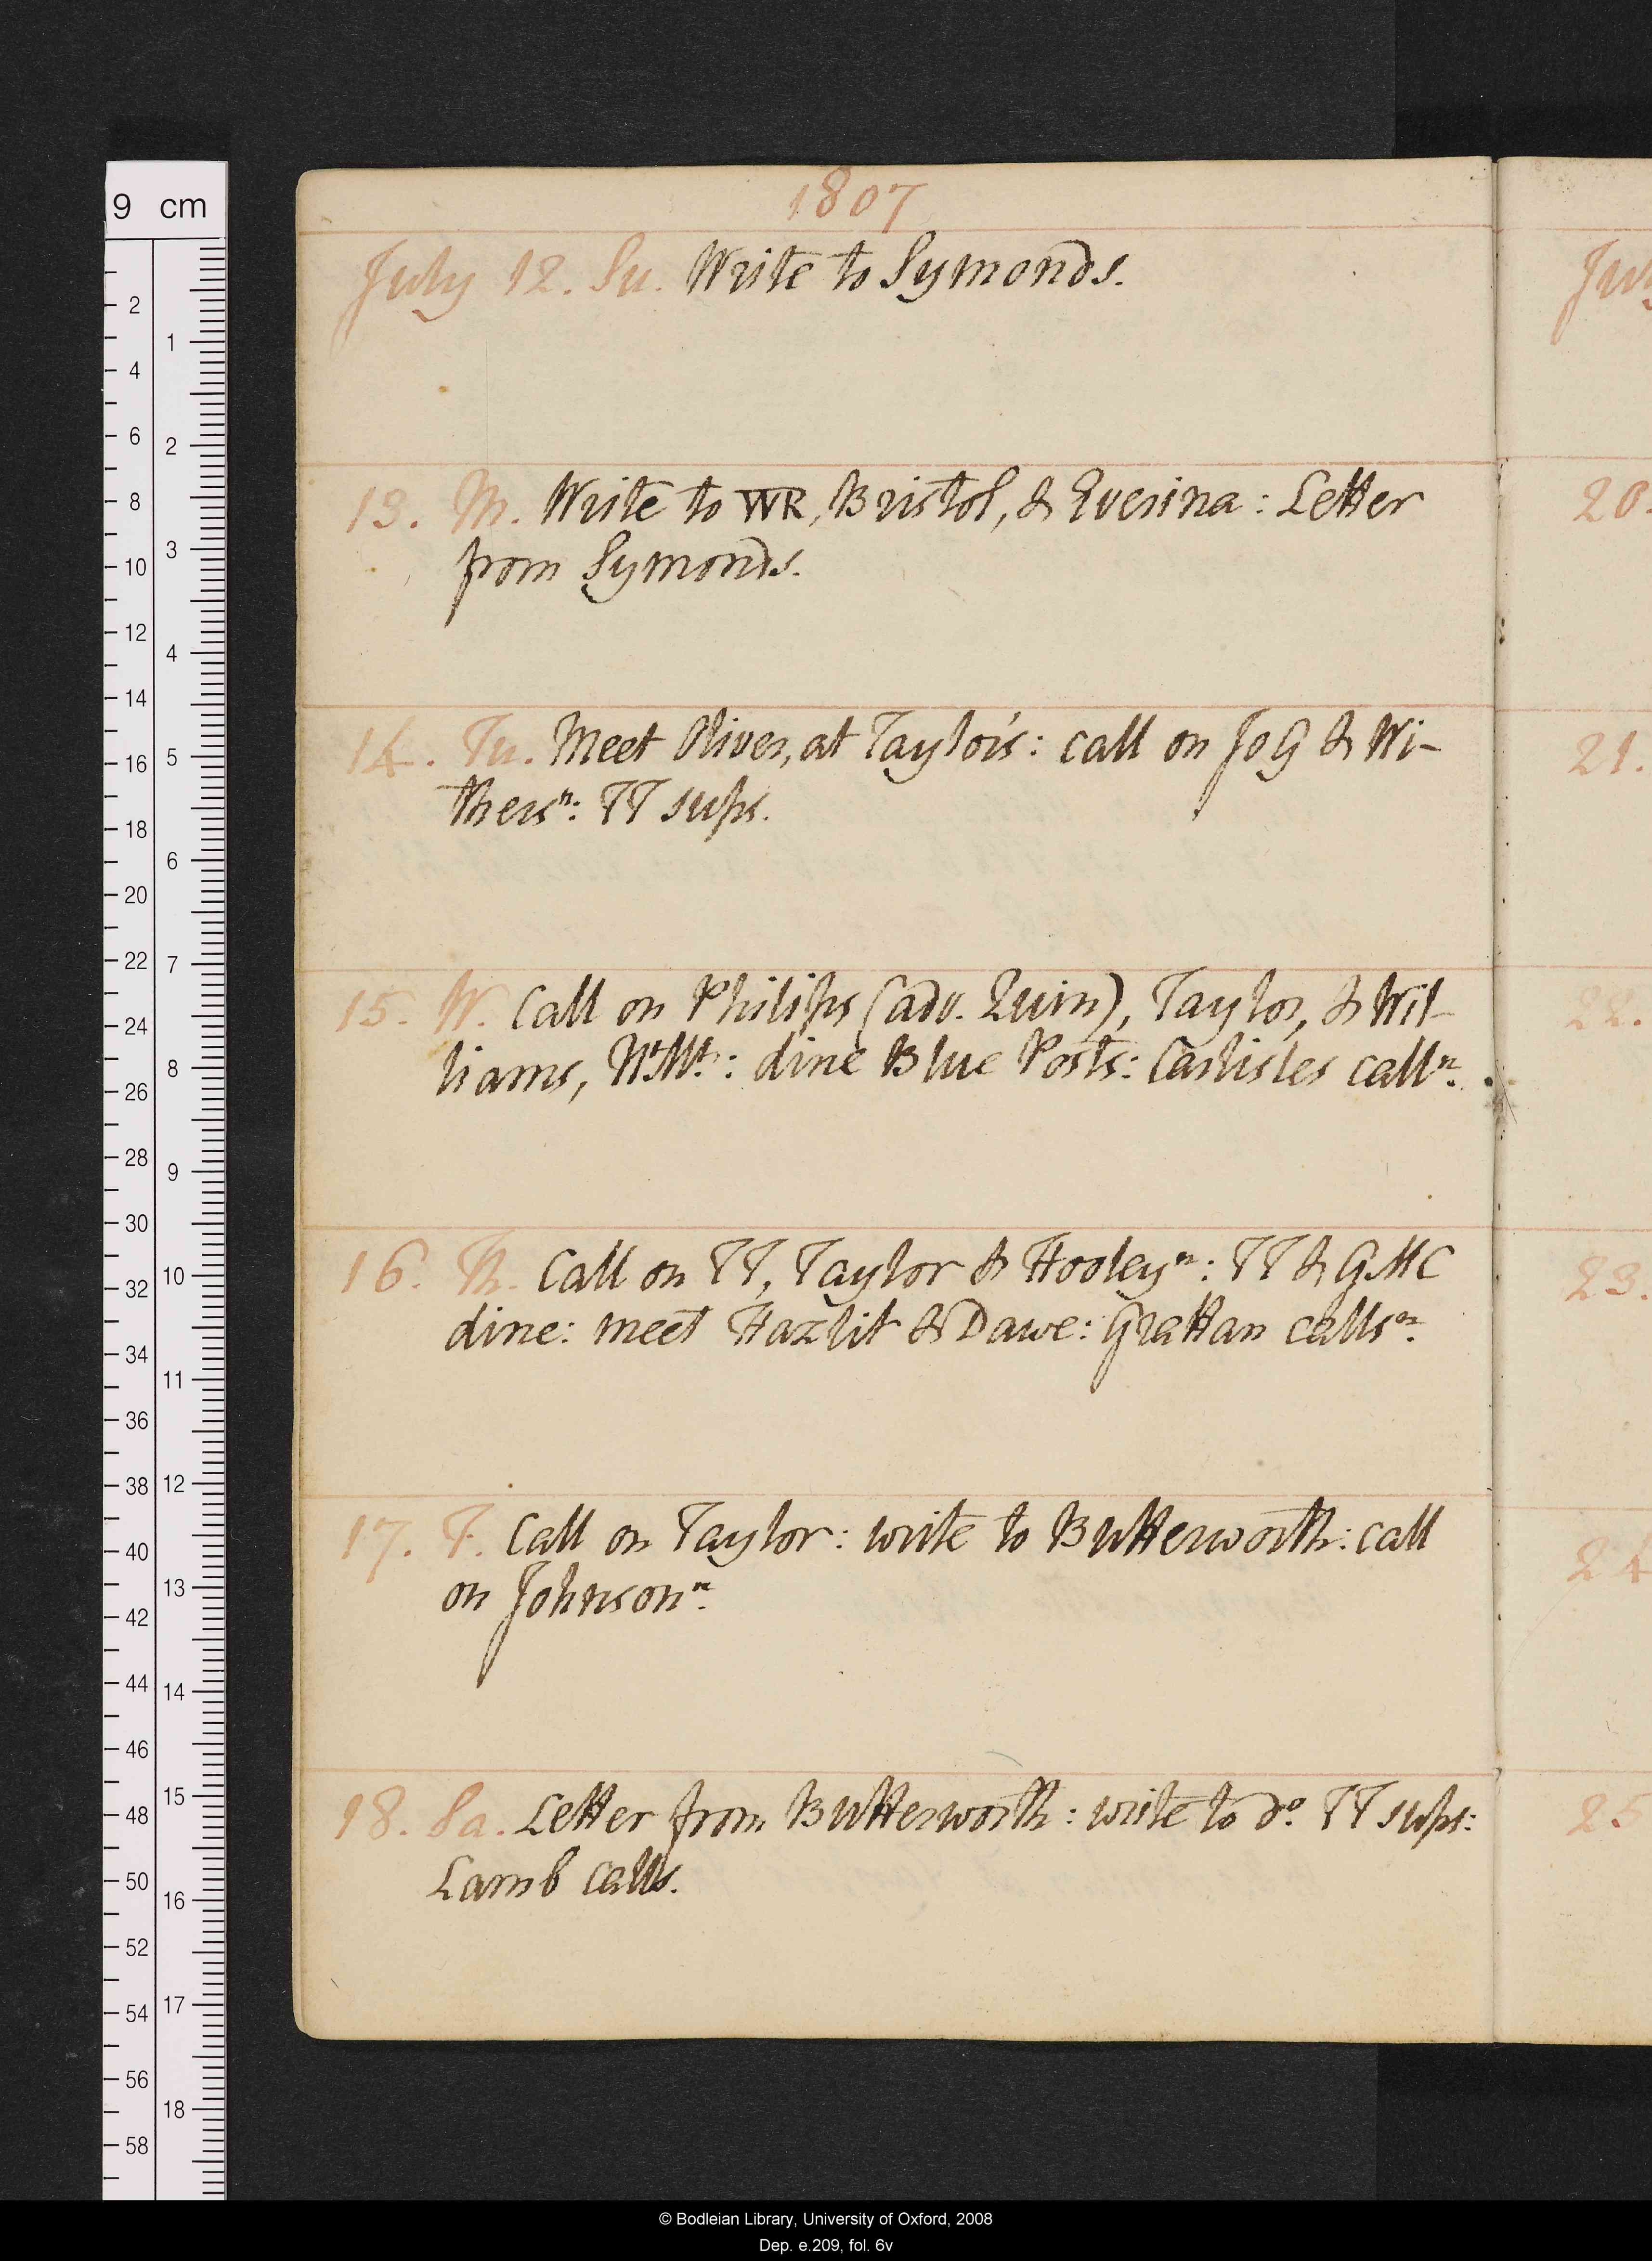 1807
July 12. Su. Write to Symonds.
13. M. Write to WR, Bristol, & Everina: Letter
from Symonds.
14. Tu. Meet Oliver, at Taylor's: call on Jo G & Wi-
thersⁿ: TT sups.
15. W. Call on Philips (adv. Quin), Taylor, & Wil-
liams, : dine Blue Posts: Carlisles callⁿ.
16. Th. Call on TT, Taylor & Hooleyⁿ: TT & GMC
dine: meet Hazlit & Dawe: Grattan callsⁿ.
17. F. Call on Taylor: write to Butterworth: call
on Johnsonⁿ.
18. Sa. Letter from Butterworth: write to dᵒ. TT sups:
Lamb calls.
July
20.
21.
22.
23.
24
25
9 cm
2
4
6
8
10
12
14
16
18
20
22
24
26
28
30
32
34
36
38
40
42
44
46
48
50
52
54
56
58
1
2
3
4
5
6
7
8
9
10
11
12
13
14
15
16
17
18
© Bodleian Library, University of Oxford, 2008
Dep. e.209, fol. 6v